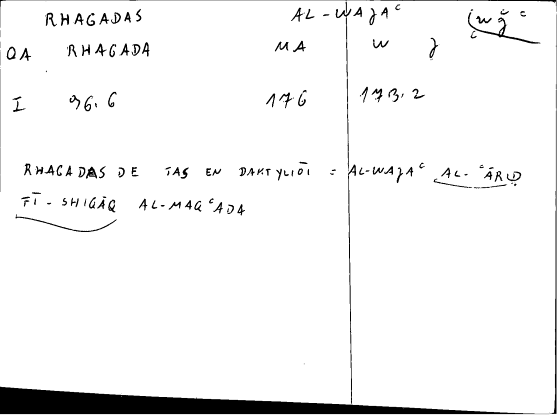 RHAGADAS AL-WAJAᶜ (wǧᶜ
QA RHAGADA MA W J ᶜ
I 96.6 176 173.2
RHAGADAS DE TAS EN DAKTYLIŌI = AL-WAJAᶜ AL-ᶜĀRIḌ
FĪ-SHIQĀQ AL-MAQᶜADA